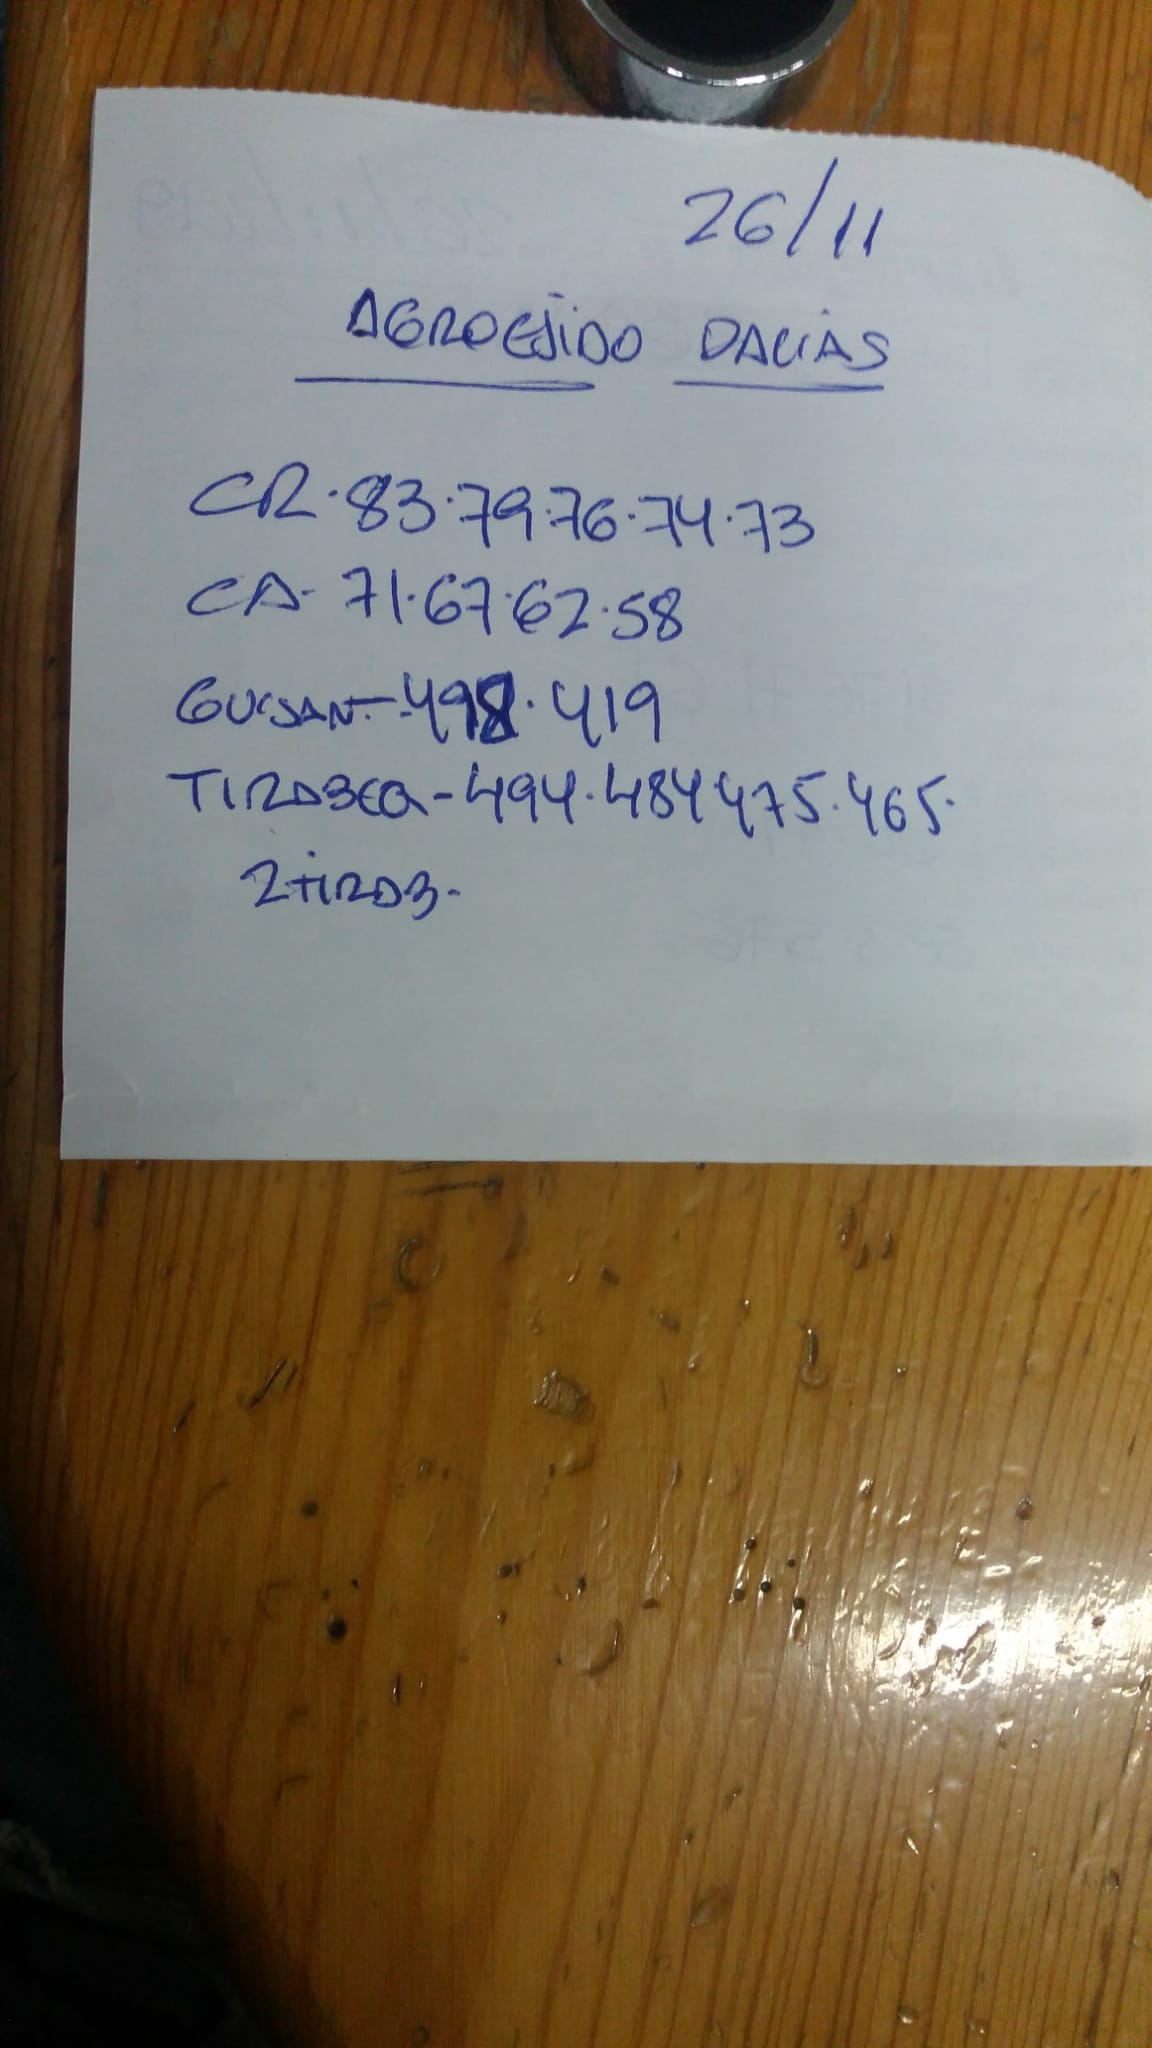 26/11
AGROEJIDO DALIAS
CR·83·79·76·74·73
CA- 71·67·62·58
GUISANT.-498·419
TIRABEQ-494·484 475·465·
2 TIRAB-